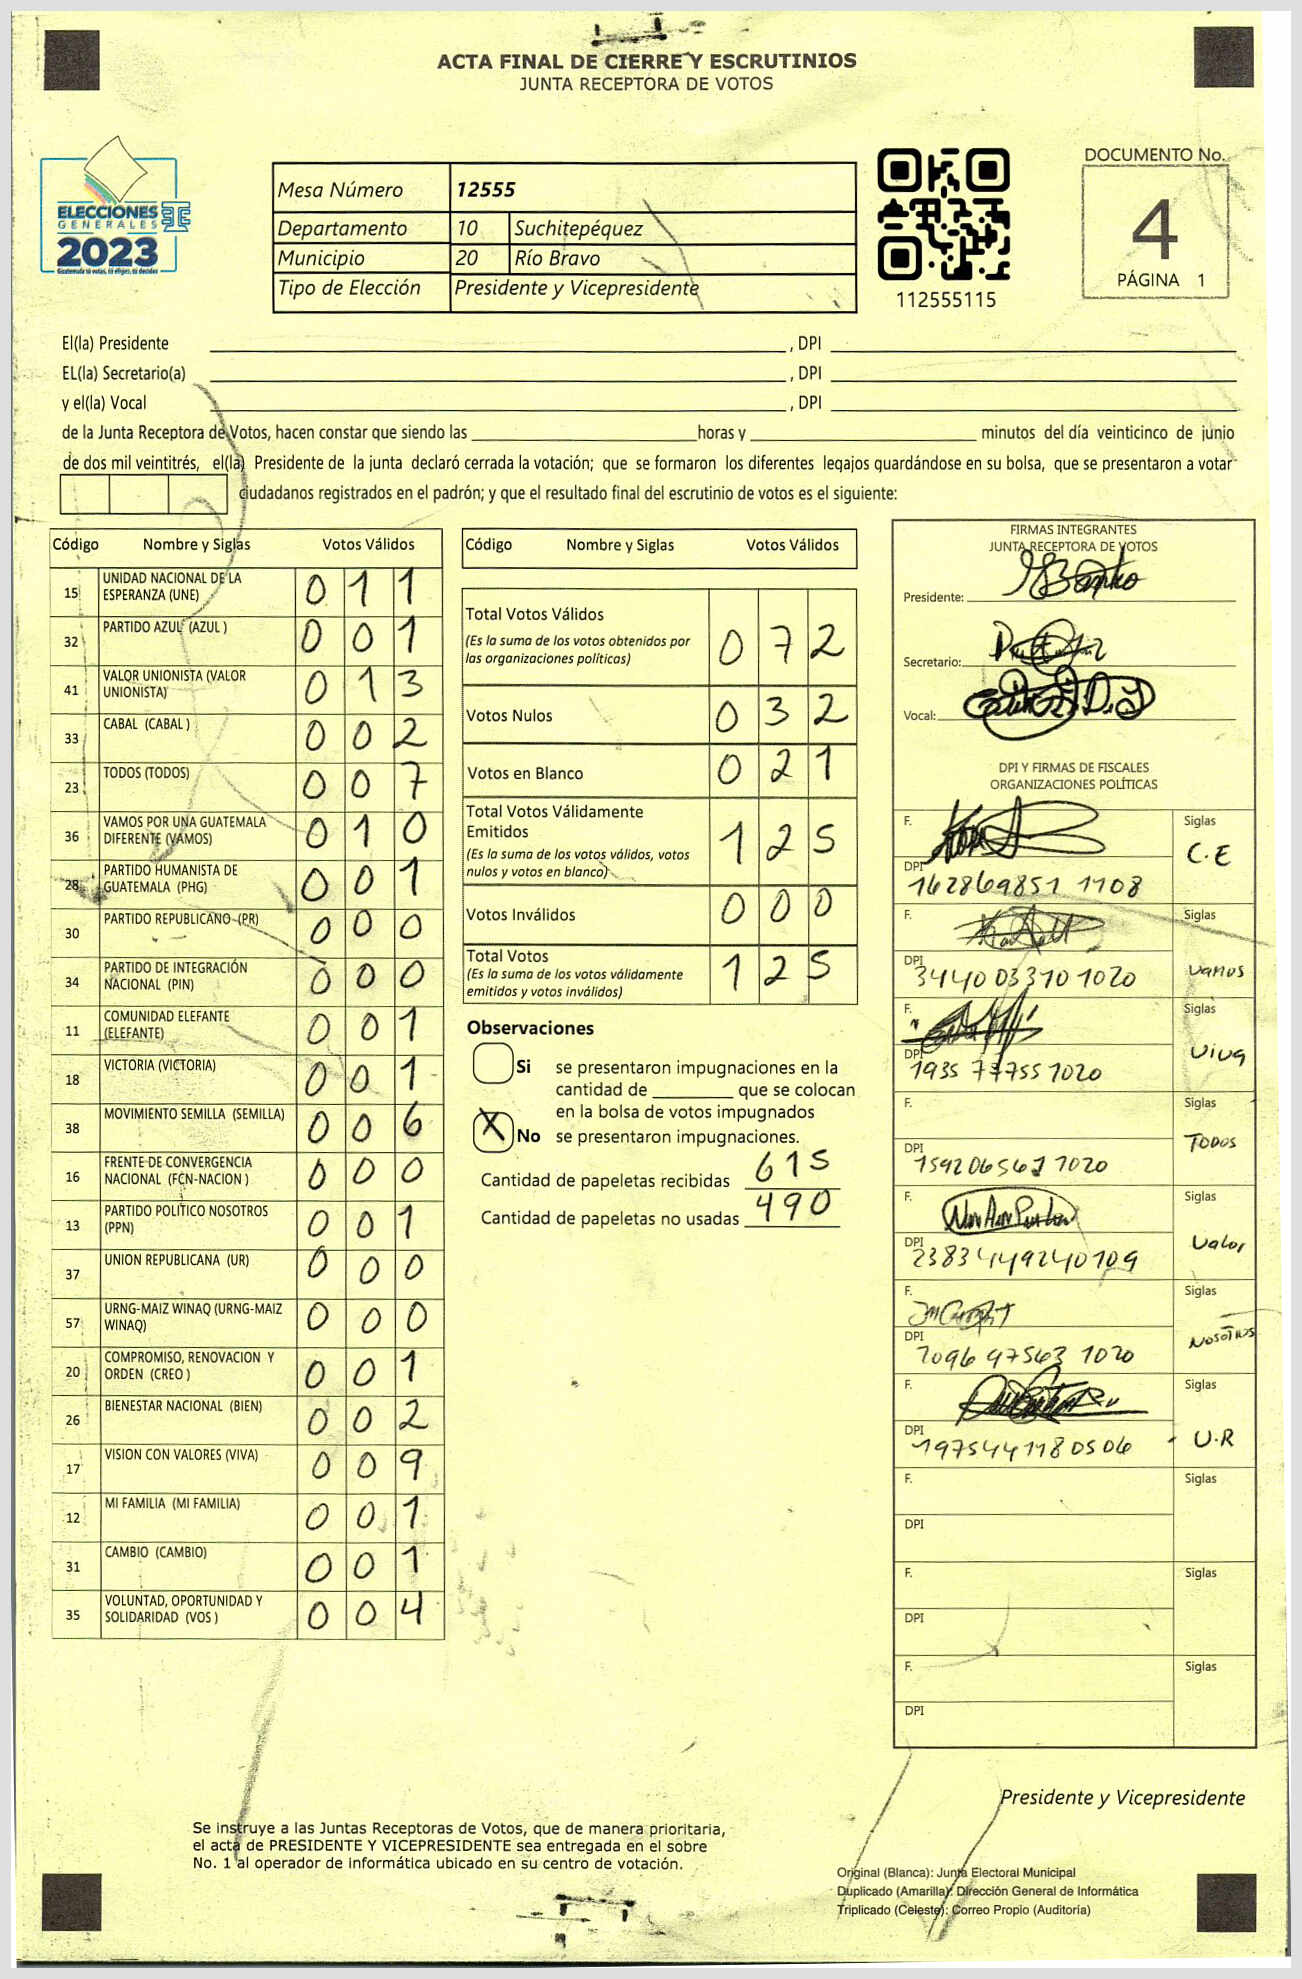 ACTA FINAL DE CIERRE Y ESCRUTINIOS
JUNTA RECEPTORA DE VOTOS
ELECCIONES
GENERALES
2023
Guatemala tú votas, tú eliges, tú decides
Mesa Número 12555
Departamento 10 Suchitepéquez
Municipio 20 Río Bravo
Tipo de Elección Presidente y Vicepresidente
112555115
DOCUMENTO No.
4
PÁGINA 1
El(la) Presidente , DPI
EL(la) Secretario(a) , DPI
y el(la) Vocal , DPI
de la Junta Receptora de Votos, hacen constar que siendo las horas y minutos del día veinticinco de junio
de dos mil veintitrés, el(la) Presidente de la junta declaró cerrada la votación; que se formaron los diferentes legajos guardándose en su bolsa, que se presentaron a votar
ciudadanos registrados en el padrón; y que el resultado final del escrutinio de votos es el siguiente:
Código Nombre y Siglas Votos Válidos
15 UNIDAD NACIONAL DE LA ESPERANZA (UNE) 0 1 1
32 PARTIDO AZUL (AZUL ) 0 0 1
41 VALOR UNIONISTA (VALOR UNIONISTA) 0 1 3
33 CABAL (CABAL ) 0 0 2
23 TODOS (TODOS) 0 0 7
36 VAMOS POR UNA GUATEMALA DIFERENTE (VAMOS) 0 1 0
28 PARTIDO HUMANISTA DE GUATEMALA (PHG) 0 0 1
30 PARTIDO REPUBLICANO (PR) 0 0 0
34 PARTIDO DE INTEGRACIÓN NACIONAL (PIN) 0 0 0
11 COMUNIDAD ELEFANTE (ELEFANTE) 0 0 1
18 VICTORIA (VICTORIA) 0 0 1
38 MOVIMIENTO SEMILLA (SEMILLA) 0 0 6
16 FRENTE DE CONVERGENCIA NACIONAL (FCN-NACION ) 0 0 0
13 PARTIDO POLITICO NOSOTROS (PPN) 0 0 1
37 UNION REPUBLICANA (UR) 0 0 0
57 URNG-MAIZ WINAQ (URNG-MAIZ WINAQ) 0 0 0
20 COMPROMISO, RENOVACION Y ORDEN (CREO ) 0 0 1
26 BIENESTAR NACIONAL (BIEN) 0 0 2
17 VISION CON VALORES (VIVA) 0 0 9
12 MI FAMILIA (MI FAMILIA) 0 0 1
31 CAMBIO (CAMBIO) 0 0 1
35 VOLUNTAD, OPORTUNIDAD Y SOLIDARIDAD (VOS ) 0 0 4
Código Nombre y Siglas Votos Válidos
Total Votos Válidos 0 7 2
(Es la suma de los votos obtenidos por
las organizaciones políticas)
Votos Nulos 0 3 2
Votos en Blanco 0 2 1
Total Votos Válidamente
Emitidos 1 2 5
(Es la suma de los votos válidos, votos
nulos y votos en blanco)
Votos Inválidos 0 0 0
Total Votos 1 2 5
(Es la suma de los votos válidamente
emitidos y votos inválidos)
Observaciones
Si se presentaron impugnaciones en la
cantidad de que se colocan
en la bolsa de votos impugnados
X No se presentaron impugnaciones.
Cantidad de papeletas recibidas 615
Cantidad de papeletas no usadas 490
FIRMAS INTEGRANTES
JUNTA RECEPTORA DE VOTOS
Presidente:
Secretario:
Vocal:
DPI Y FIRMAS DE FISCALES
ORGANIZACIONES POLÍTICAS
F. Siglas C.E
DPI 162869851 1108
F. Siglas Vamos
DPI 3440 03370 1020
F. Siglas Viva
DPI 1935 77755 1020
F. Siglas TODOS
DPI
F. Siglas Valor
DPI 2383449240109
F. Siglas NOSOTROS
DPI 7096 97563 1020
F. Siglas U.R
DPI 1975441180506
F. Siglas
DPI
F. Siglas
DPI
F. Siglas
DPI
Presidente y Vicepresidente
Se instruye a las Juntas Receptoras de Votos, que de manera prioritaria,
el acta de PRESIDENTE Y VICEPRESIDENTE sea entregada en el sobre
No. 1 al operador de informática ubicado en su centro de votación.
Original (Blanca): Junta Electoral Municipal
Duplicado (Amarilla): Dirección General de Informática
Triplicado (Celeste): Correo Propio (Auditoría)